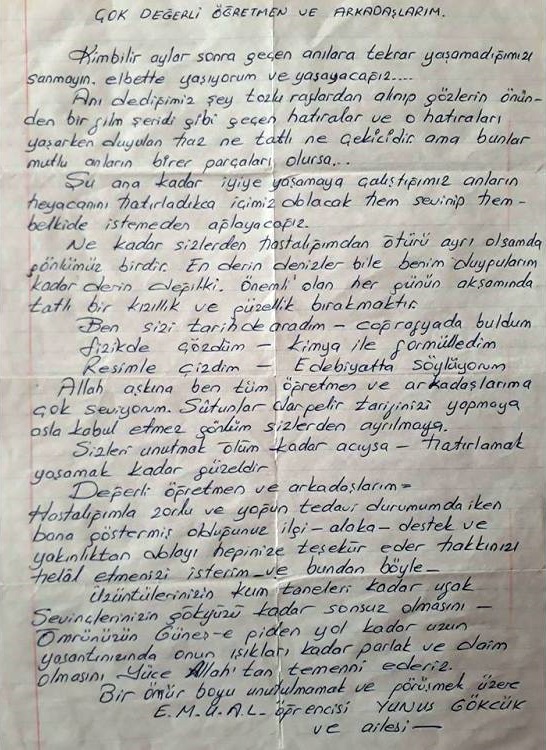 ÇOK DEĞERLİ ÖĞRETMEN VE ARKADAŞLARIM.
Kimbilir aylar sonra geçen anılara tekrar yaşamadığımızı
sanmayın. elbette yaşıyorum ve yaşayacağız....
Anı dediğimiz şey tozlu raflardan alınıp gözlerin önün-
den bir film şeridi gibi geçen hatıralar ve o hatıraları
yaşarken duyulan haz ne tatlı ne çekicidir ama bunlar
mutlu anların birer parçaları olursa...
Şu ana kadar iyiye yaşamaya çalıştığımız anların
heyacanını hatırladıkca içimiz dolacak hem sevinip hem-
belkide istemeden ağlayacağız.
Ne kadar sizlerden hastalığımdan ötürü ayrı olsamda
gönlümüz birdir. En derin denizler bile benim duygularım
kadar derin değilki. Önemli olan her günün akşamında
tatlı bir kızıllık ve güzellik bırakmaktır.
Ben sizi tarihde aradım - coğrafyada buldum
fizikde çözdüm - Kimya ile formülledim
Resimle çizdim - Edebiyatta söylüyorum
Allah aşkına ben tüm öğretmen ve arkadaşlarıma
çok seviyorum. Sütunlar dar gelir tarifinizi yapmaya
asla kabul etmez gönlüm sizlerden ayrılmaya.
Sizleri unutmak ölüm kadar acıysa - hatırlamak
yaşamak kadar güzeldir
Değerli öğretmen ve arkadaşlarım =
Hastalığımla zorlu ve yoğun tedavi durumumda iken
bana göstermiş olduğunuz ilgi - alaka - destek ve
yakınlıktan dolayı hepinize teşekür eder hakkınızı
helâl etmenizi isterim - ve bundan böyle -
Üzüntülerinizin kum taneleri kadar ufak
Sevinçlerinizin gökyüzü kadar sonsuz olmasını -
Ömrünüzün Güneş-e giden yol kadar uzun
yaşantınızında onun ışıkları kadar parlak ve daim
olmasını Yüce Allah'tan temenni ederiz.
Bir ömür boyu unutulmamak ve görüşmek üzere
E.M.U.A.L. öğrencisi YUNUS GÖKÇÜK
ve ailesi -